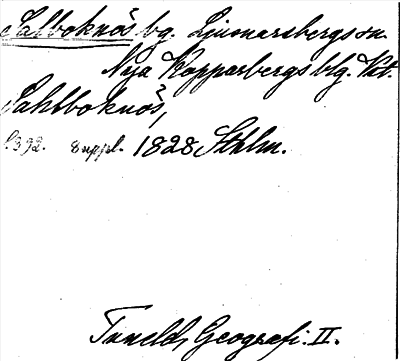 Salboknös bg. Ljusnarsbergs sn.
Nya Kopparbergs blg. Vstm.
Sahlboknös,
s. 392. 8 uppl. 1828 Sthlm.
Tuneld, Geografi. II.